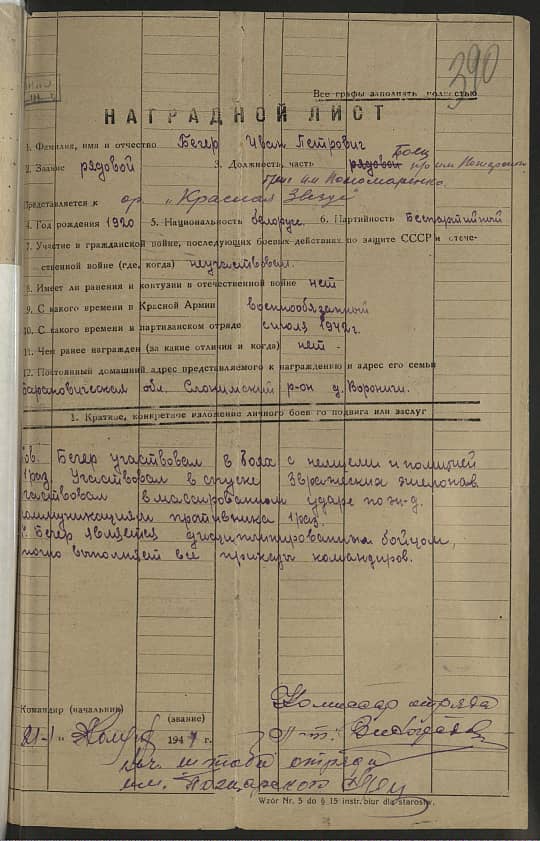 390
Все графы заполнять полностью
НАГРАДНОЙ ЛИСТ
1. Фамилия, имя и отчество Бегер Иван Петрович
2. Звание рядовой 3. Должность, часть рядовой Боец п/о им Пожарского
бриг им Пономаренко.
Представляется к ор. „Красная Звезда"
4. Год рождения 1920 5. Национальность белорус. 6. Партийность Беспартийный
7. Участие в гражданской войне, последующих боевых действиях по защите СССР и отече-
ственной войне (где, когда) неучаствовал.
8. Имеет ли ранения и контузии в отечественной войне нет
9. С какого времени в Красной Армии военнообязанный
10. С какого времени в партизанском отряде с июля 1942 г.
11. Чем ранее награжден (за какие отличия и когда) нет.
12. Постоянный домашний адрес представляемого к награждению и адрес его семьи
барановичская обл. Слонимский р-он д. Вороничи.
1. Краткое, конкретное изложение личного боевого подвига или заслуг
тов. Бегер участвовал в боях с немцами и полицией
1 раз. Участвовал в спуске 3 вражеских эшелонов
участвовал в массированном ударе по ж-д.
коммуникациям противника 1 раз.
Бегер является дисциплинированным бойцом,
точно выполняет все приказы командиров.
Командир (начальник)
(звание)
194 г.
Комиссар отряда
Нач. штаба отряда
им. Пожарского
Wzór Nr. 5 do § 15 instr. biur dla starostw.